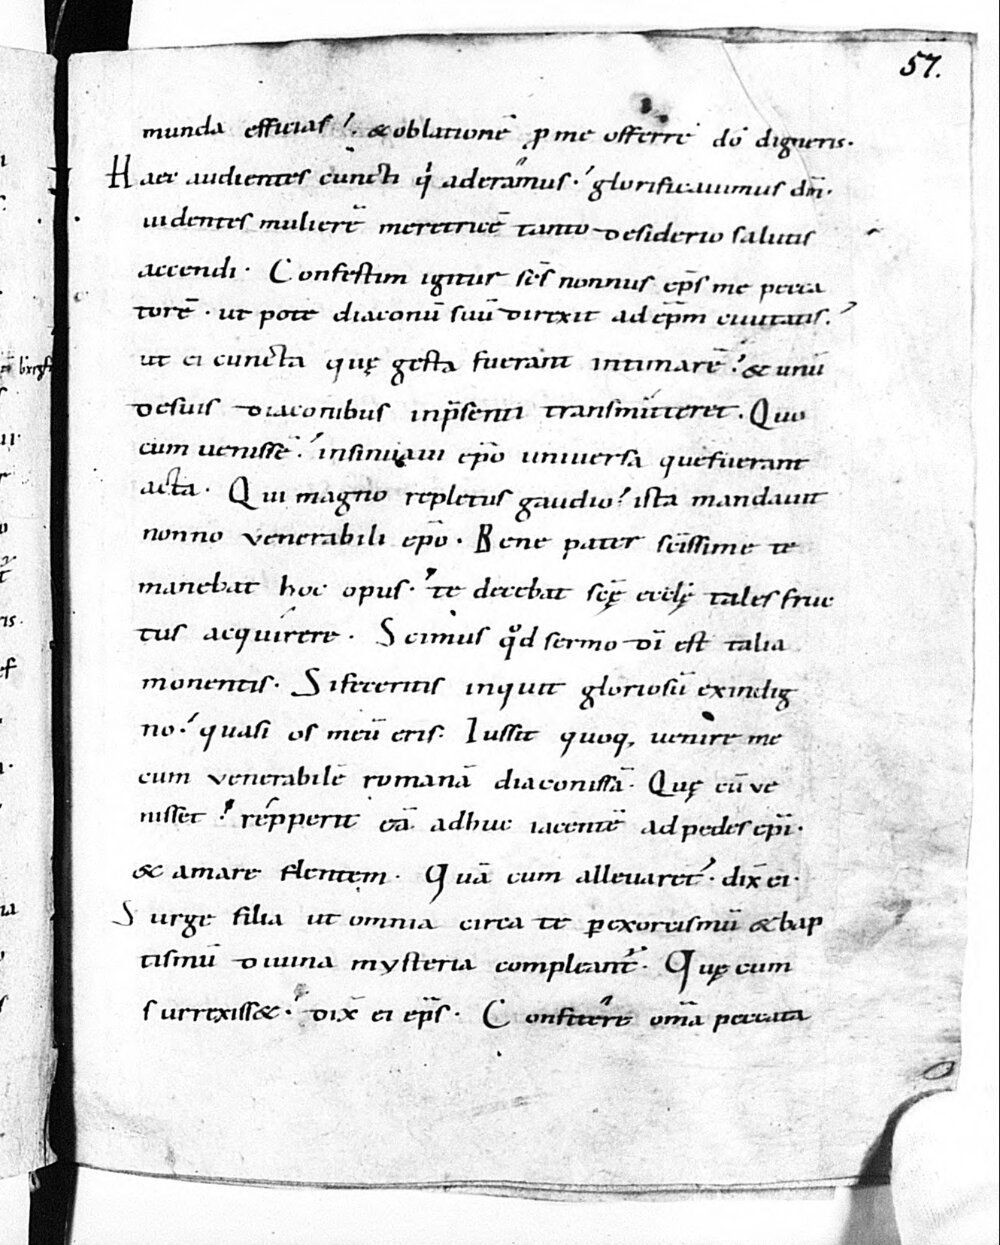 57.
munda efficias. & oblationē p̄ me offerre dō digneris.
Haec audientes cuncti q̄ aderamus. glorificauimus dn̄m.
uidentes mulierē meretricē tanto desiderio salutis
accendi. Confestim igitur scs̄ nonnus ep̄s me pecca
torē. ut pote diaconū suū direxit ad ep̄m ciuitatis.
ut ei cuncta quę gesta fuerant intimarē. & unū
de suis diaconibus in p̄senti transmitteret. Quo
cum uenissē. insinuaui ep̄o uniuersa que fuerant
acta. Qui magno repletus gaudio. ista mandauit
nonno venerabili ep̄o. Bene pater scīssime te
manebat hoc opus. te decebat scę̄ ecclę̄ tales fruc
tus acquirere. Scimus qd̄ sermo dī est talia
monentis. Si feceritis inquit gloriosū ex indig
no. quasi os meū eris. Iussit quoq, uenire me
cum venerabilē romanā diaconissā. Quę cū ve
nisset. repperit eā adhuc iacentē ad pedes ep̄i.
& amare flentem. Quā cum alleuaret. dix̄ ei.
Surge filia ut omnia circa te p exorcismū & bap
tismū diuina mysteria compleant̄. Quę cum
surrexiss&. dix̄ ei ep̄s. Confitere om̄a peccata